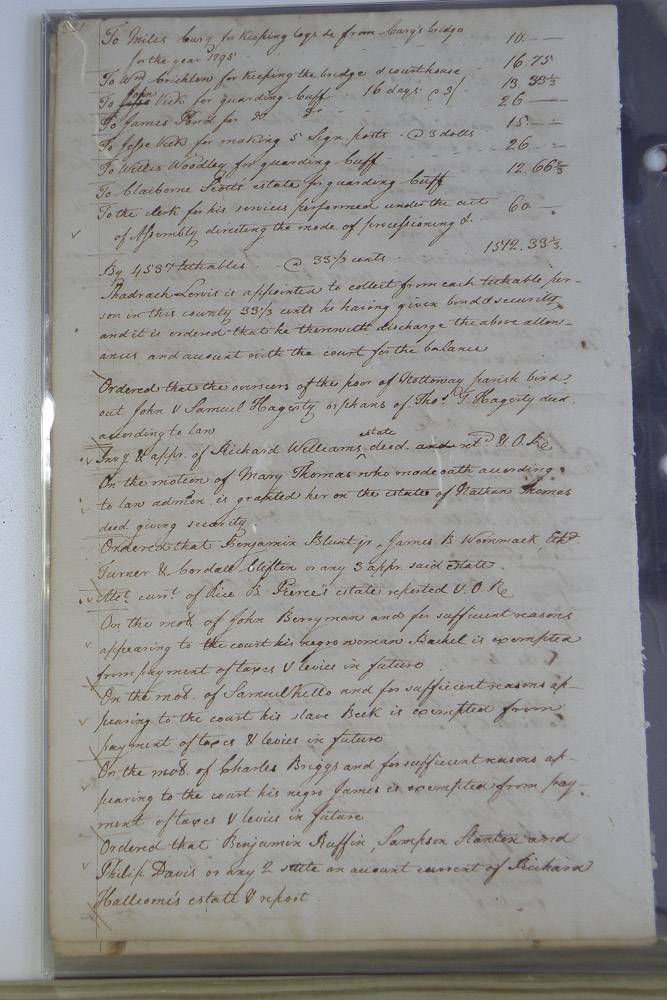 To Miles Cary for keeping logs &c from Cary's bridge
for the year 1795 10. —
To Wm. Cricklow for keeping the bridge & courthouse 16.75
To John Vick for guarding Cuff 16 days @ 5/. 13 33⅓
To James Pond for do do 26 —
To Jesse Vick for making 5 sign posts @ 3 dolls 15 —
To Willis Woodley for guarding Cuff 26 —
To Claiborne Scotts estate for guarding Cuff 12.66⅔
To the clerk for his services performed under the act
of Assembly directing the mode of processioning &. 60 —
By 4537 tithables @ 33⅓ cents 1512.33⅓
Shadrach Lewis is appointed to collect from each tithable per-
son in this county 33⅓ cents he having given bond & security
and it is ordered that he therewith discharge the above allow-
ances and account with the court for the balance
Ordered that the overseers of the poor of Nottoway parish bind
out John & Samuel Hagerty orphans of Thos. T Hagerty decd.
according to law
Invy & appr. of Richard Williams decd. estate retd. & O. R.
On the motion of Mary Thomas who made oath according
to law admon. is granted her on the estate of Nathan Thomas
decd giving security
Ordered that Benjamin Blunt jr. James B Wommack,
Turner & Cordall Clifton or any 3 appr. said estate.
Acct. currt. of Rice B. Pierce's estate reported & O. R.
On the mod. of John Berryman and for sufficient reasons
appearing to the court his negro woman Rachel is exempted
from payment of taxes & levies in future
On the mod. of Samuel Kello and for sufficient reasons ap-
pearing to the court his slave Beck is exempted from
payment of taxes & levies in future
On the mod. of Charles Briggs and for sufficient reasons ap-
pearing to the court his negro James is exempted from pay-
ment of taxes & levies in future
Ordered that Benjamin Ruffin, Sampson Stanton and
Philip Davis or any 2 state an account current of Richard
Hallcomb's estate & report.